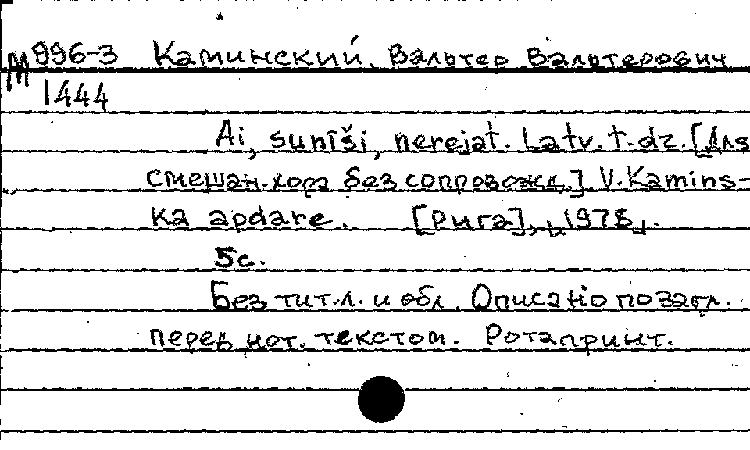 М 996-3 Каминский, Вальтер Вальтерович
1444
Ai, sunīši, nerejat. Latv. t. dz. [Для
смешан. хора без сопровожд.] V. Kamins-
ka apdare. [Рига], 1975.
5с.
Без тит. л. и обл. Описано по загл.
перед нот. текстом. Ротапринт.